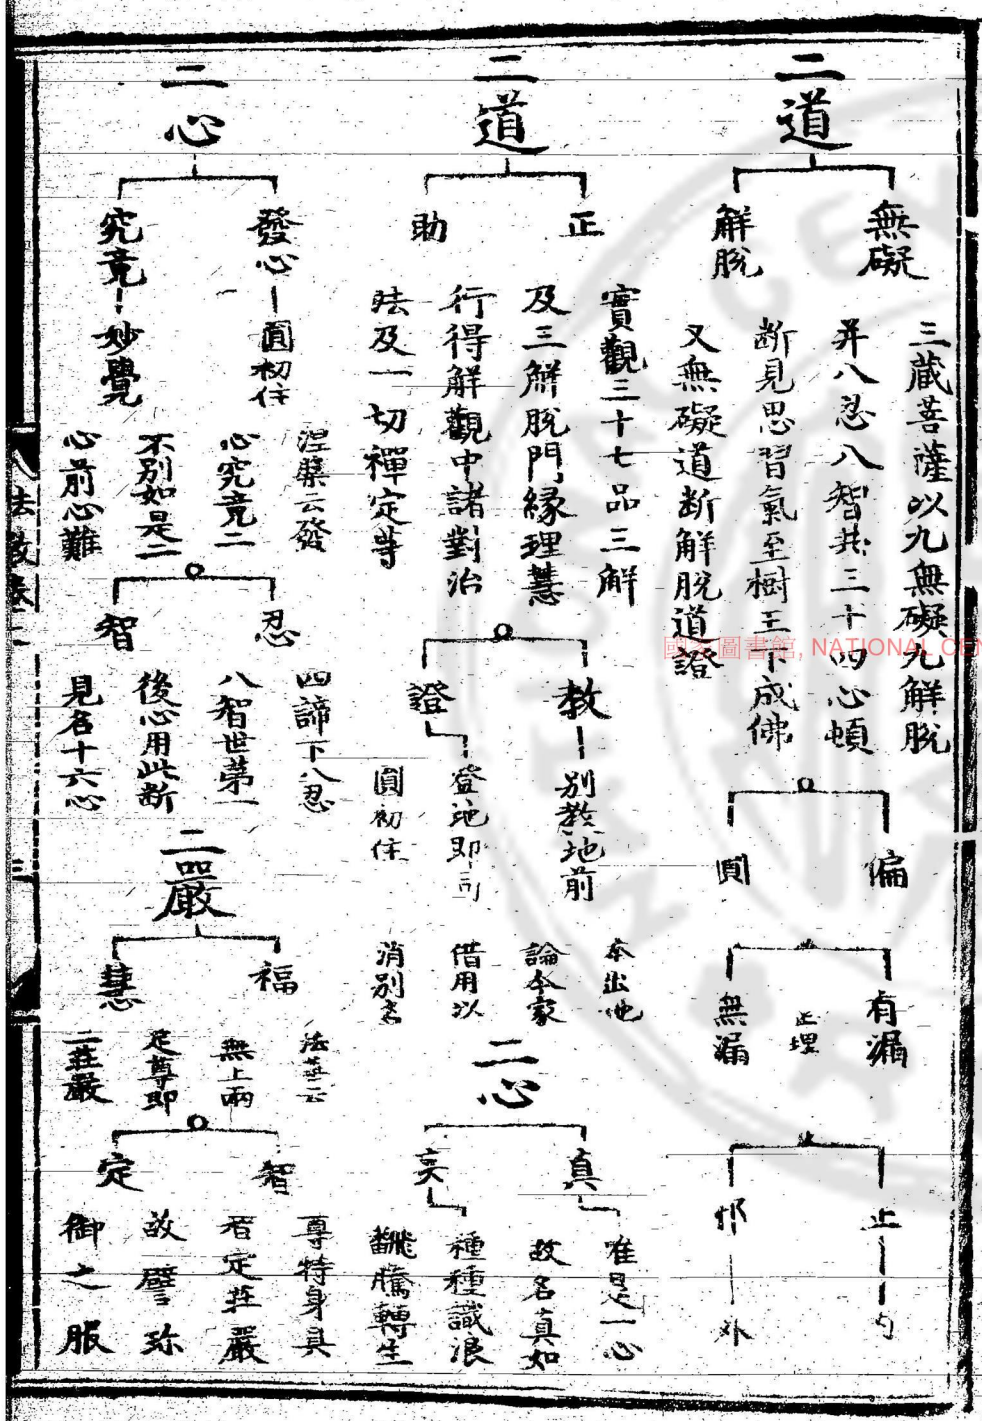 二道
無礙
解脫
三藏菩薩以九無礙九解脫
并八忍八智共三十四心頓
断見思習氣至樹王下成佛
又無礙道断解脫道證
偏
圓
有漏
無漏
正
邪
内
外
二道
正
助
實觀三十七品三解
及三解脫門緣理慧
行得解觀中諸對治
法及一切禪定等
教
別教地前
證
登地即
圓初住
本出地
論本家
借用以
消別
二心
真
唯是一心
故名真如
妄
種種識浪
飜騰轉生
二心
發心
圓初住
究竟
妙覺
涅槃云發
心究竟二
不别如是二
心前心難
忍
智
四諦下八忍
八智世第一
後心用此断
見名十六心
二嚴
福
慧
法華云
無上兩
足尊即
二莊嚴
智
定
尊特身具
智定莊嚴
故譬珎
御之服
法數卷
三
國家圖書館, NATIONAL CEN